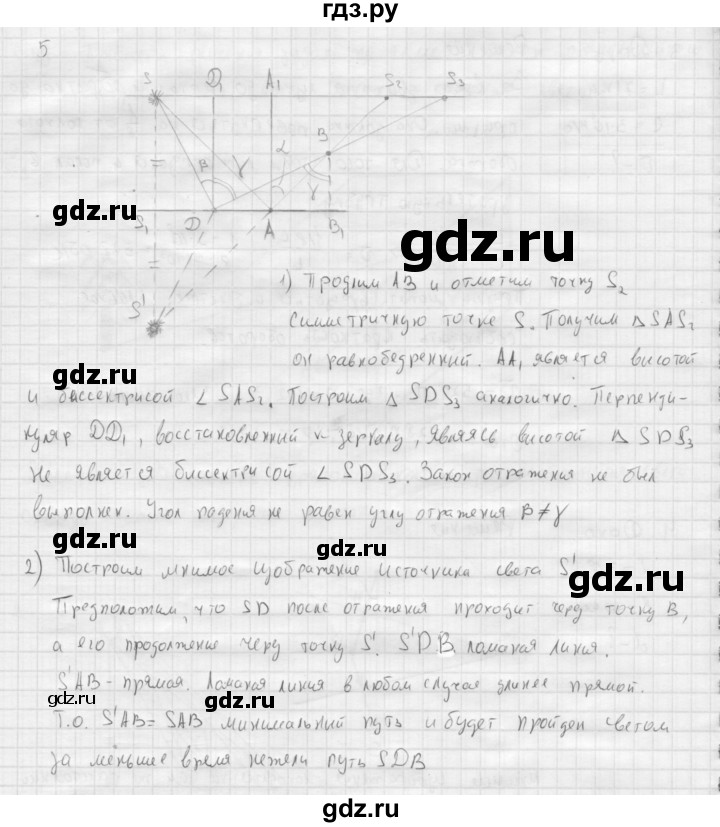 гдз.ру
5
S D₁ A₁ S₂ S₃
B
β γ α
γ
S₁ D A B₁
gdz.ru
gdz.ru
S'
1) Продлим AB и отметим точку S₂
симметричную точке S. Получим △SAS₂
он равнобедренный. AA₁ является высотой
gdz.ru
и биссектрисой ∠SAS₂. Построим △SDS₃ аналогично. Перпенди-
куляр DD₁, восстановленный к зеркалу, являясь высотой △SDS₃
не является биссектрисой ∠SDS₃. Закон отражения не был
выполнен. Угол падения не равен углу отражения β≠γ
gdz.ru
gdz.ru
2) Построим мнимое изображение источника света S'
gdz.ru
Предположим, что SD после отражения проходит через точку B,
а его продолжение через точку S'. S'DB ломаная линия.
S'AB - прямая. Ломаная линия в любом случае длинее прямой.
gdz.ru
gdz.ru
Т.о. S'AB = SAB минимальный путь и будет пройден светом
за меньшее время нежели путь SDB
gdz.ru